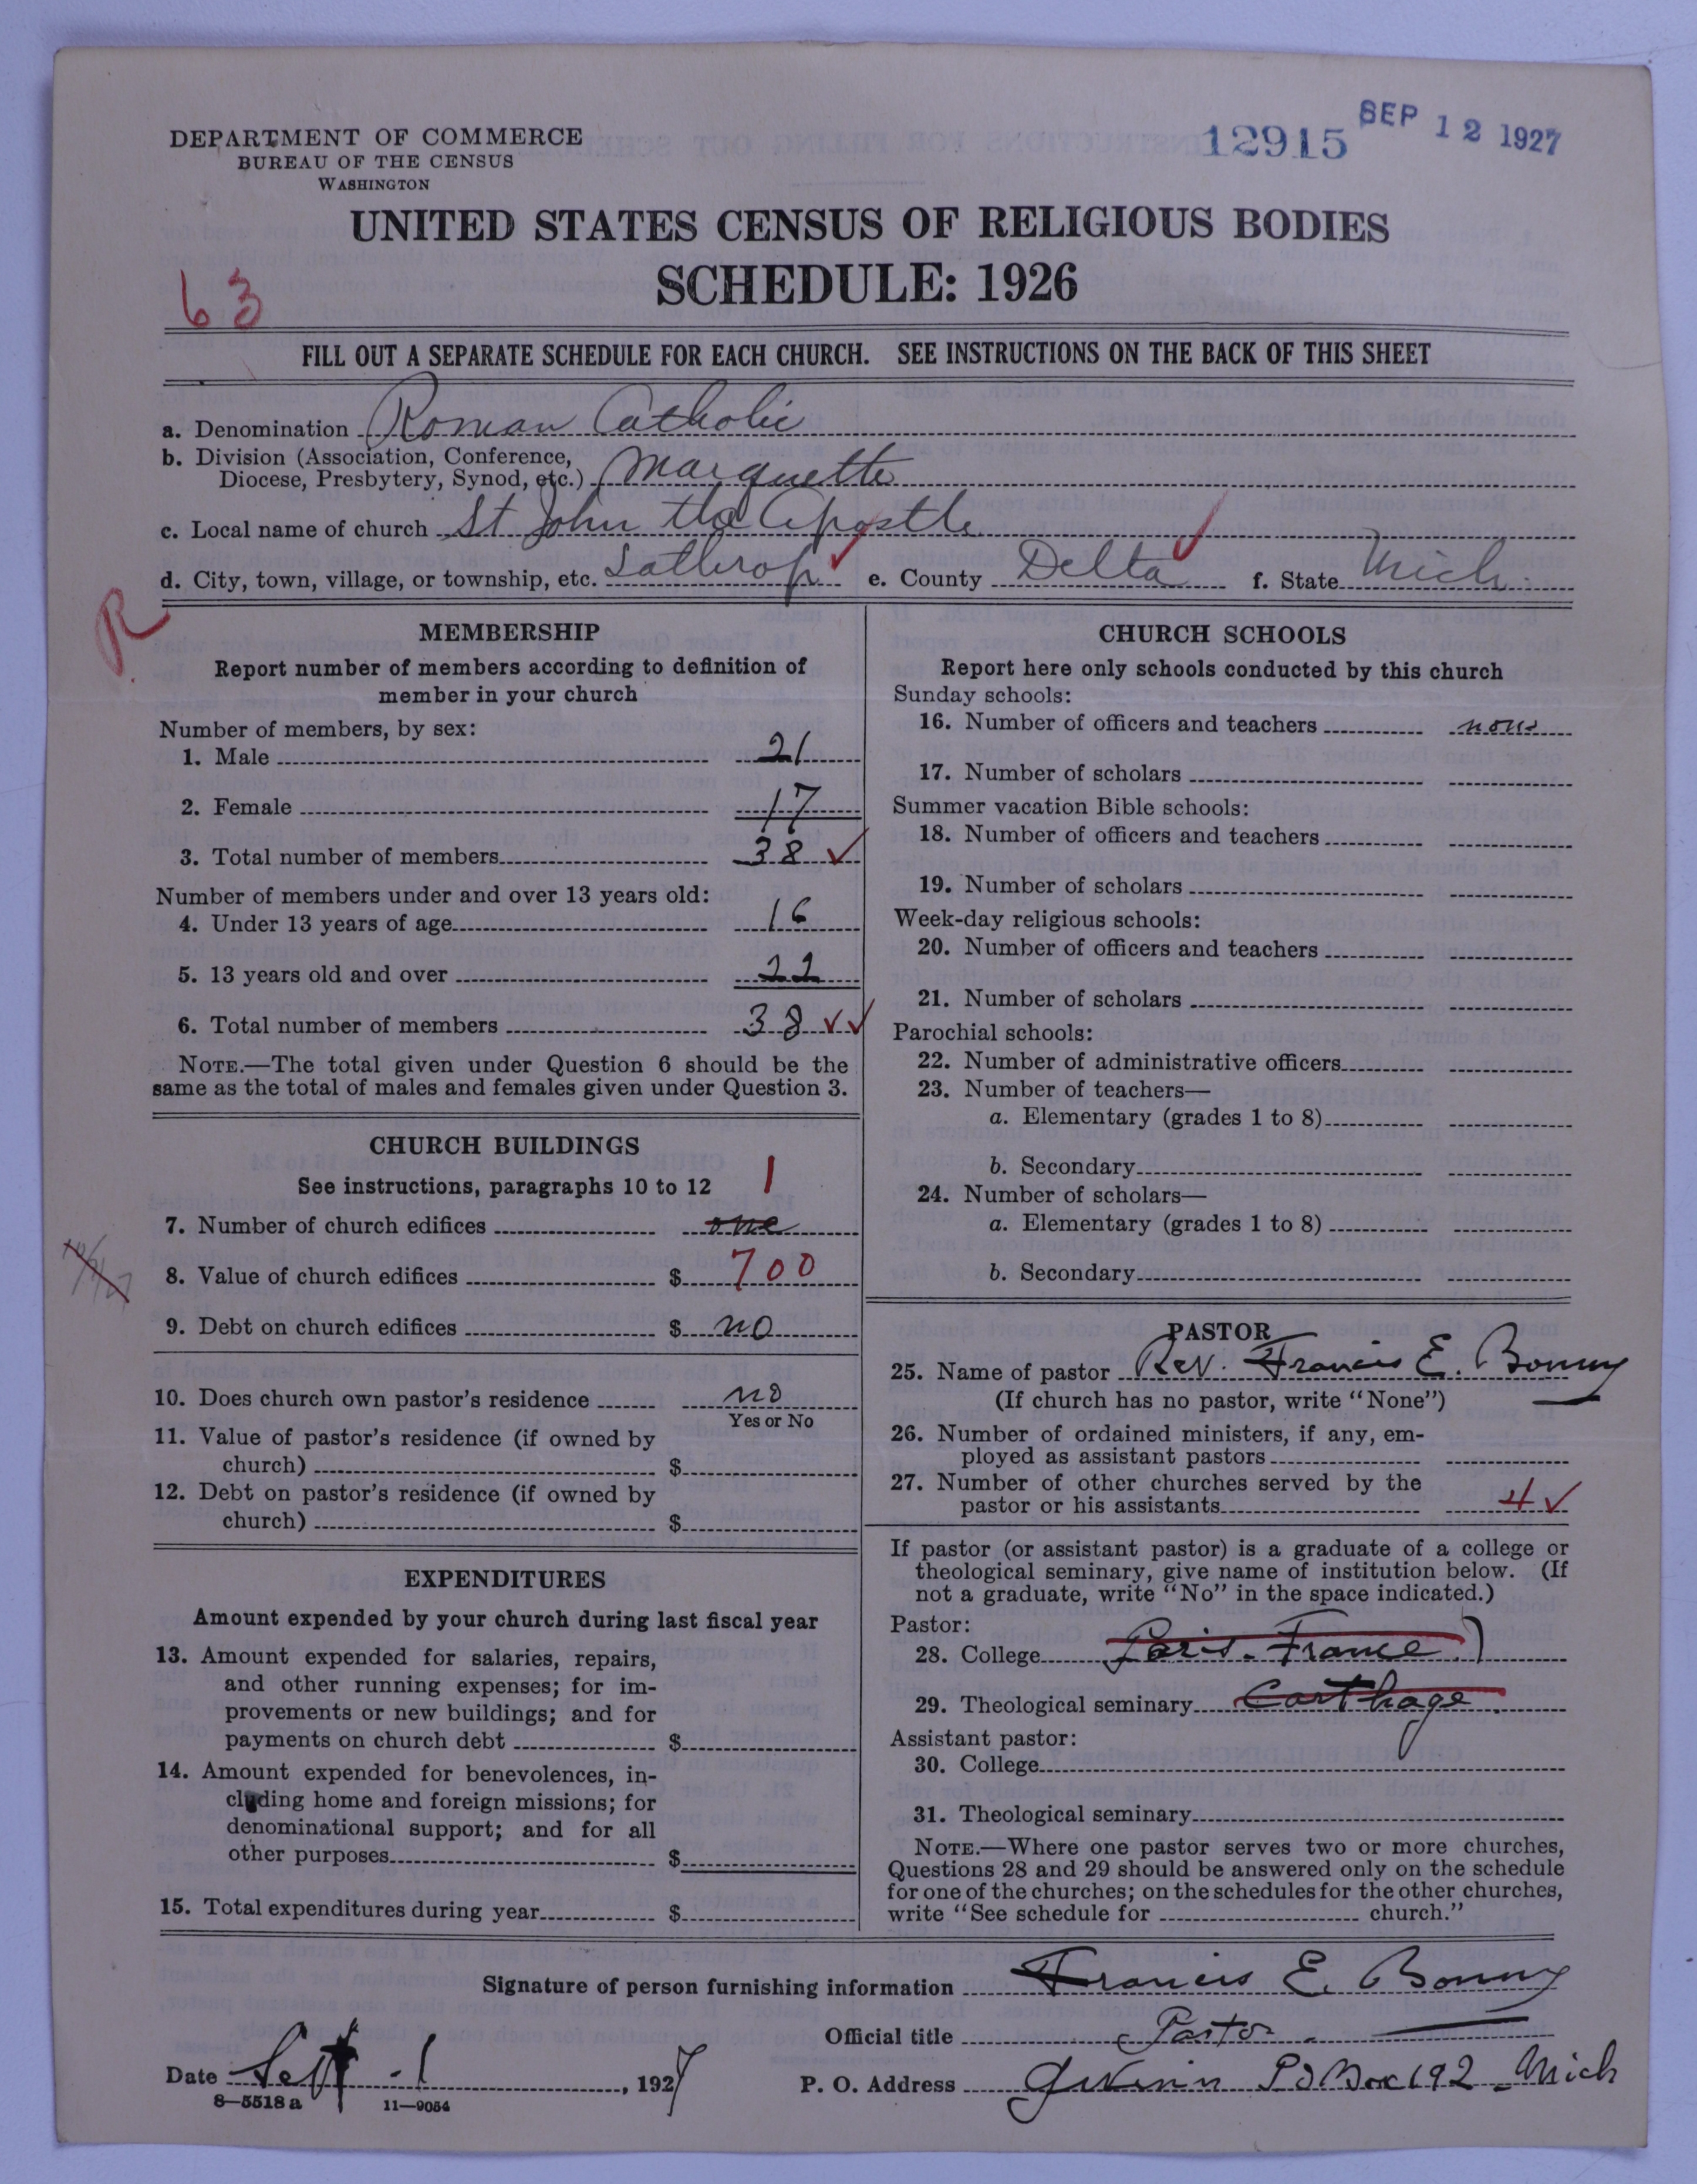 DEPARTMENT OF COMMERCE
BUREAU OF THE CENSUS
WASHINGTON
12915 SEP 12 1927
UNITED STATES CENSUS OF RELIGIOUS BODIES
SCHEDULE: 1926
63
FILL OUT A SEPARATE SCHEDULE FOR EACH CHURCH. SEE INSTRUCTIONS ON THE BACK OF THIS SHEET
a. Denomination Roman Catholic
b. Division (Association, Conference,
Diocese, Presbytery, Synod, etc.) Marquette
c. Local name of church St John the Apostle
d. City, town, village, or township, etc. Lathrop e. County Delta f. State Mich.
R
MEMBERSHIP
Report number of members according to definition of
member in your church
Number of members, by sex:
1. Male 21
2. Female 17
3. Total number of members 38 ✓
Number of members under and over 13 years old:
4. Under 13 years of age 16
5. 13 years old and over 22
6. Total number of members 38 ✓✓
NOTE.—The total given under Question 6 should be the
same as the total of males and females given under Question 3.
CHURCH BUILDINGS
See instructions, paragraphs 10 to 12 1
7. Number of church edifices one
8. Value of church edifices $ 700
9. Debt on church edifices $ no
10. Does church own pastor's residence no
Yes or No
11. Value of pastor's residence (if owned by
church) $
12. Debt on pastor's residence (if owned by
church) $
EXPENDITURES
Amount expended by your church during last fiscal year
13. Amount expended for salaries, repairs,
and other running expenses; for im-
provements or new buildings; and for
payments on church debt $
14. Amount expended for benevolences, in-
cluding home and foreign missions; for
denominational support; and for all
other purposes $
15. Total expenditures during year $
CHURCH SCHOOLS
Report here only schools conducted by this church
Sunday schools:
16. Number of officers and teachers none
17. Number of scholars
Summer vacation Bible schools:
18. Number of officers and teachers
19. Number of scholars
Week-day religious schools:
20. Number of officers and teachers
21. Number of scholars
Parochial schools:
22. Number of administrative officers
23. Number of teachers—
a. Elementary (grades 1 to 8)
b. Secondary
24. Number of scholars—
a. Elementary (grades 1 to 8)
b. Secondary
PASTOR
25. Name of pastor Rev. Francis E. Bonny
(If church has no pastor, write "None")
26. Number of ordained ministers, if any, em-
ployed as assistant pastors
27. Number of other churches served by the
pastor or his assistants 4 ✓
If pastor (or assistant pastor) is a graduate of a college or
theological seminary, give name of institution below. (If
not a graduate, write "No" in the space indicated.)
Pastor:
28. College Paris. France.)
29. Theological seminary Carthage
Assistant pastor:
30. College
31. Theological seminary
NOTE.—Where one pastor serves two or more churches,
Questions 28 and 29 should be answered only on the schedule
for one of the churches; on the schedules for the other churches,
write "See schedule for church."
Signature of person furnishing information Francis E. Bonny
Official title Pastor.
Date Sept - 1, 1927 P. O. Address Gwinn P O Box 192 - Mich
8—5518 a 11—9054